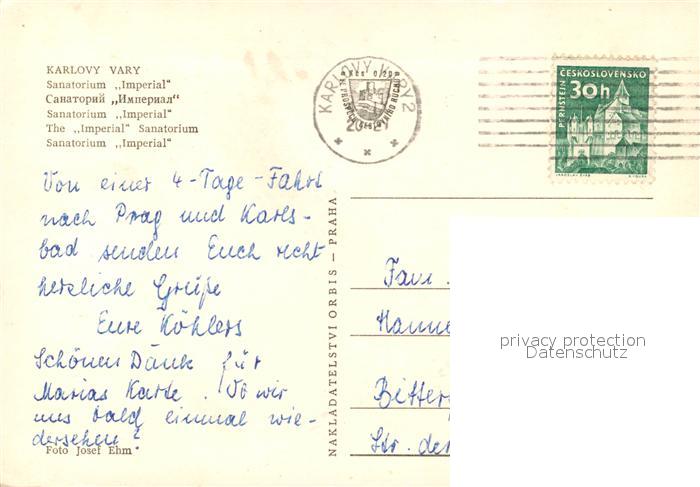 KARLOVY VARY
Sanatorium „Imperial“
Санаторий „Империал“
Sanatorium „Imperial“
The „Imperial“ Sanatorium
Sanatorium „Imperial“
KARLOVY VARY 2
PERNŠTEJN ČESKOSLOVENSKO
30h
Von einer 4-Tage-Fahrt
nach Prag und Karls-
bad senden Euch recht
herzliche Grüße
Eure Köhlers
Schönen Dank für
Marias Karte. Ob wir
uns bald einmal wie-
dersehen?
Foto Josef Ehm
NAKLADATELSTVÍ ORBIS – PRAHA
Fam.
Hanne
Bitter
Str. der
privacy protection
Datenschutz